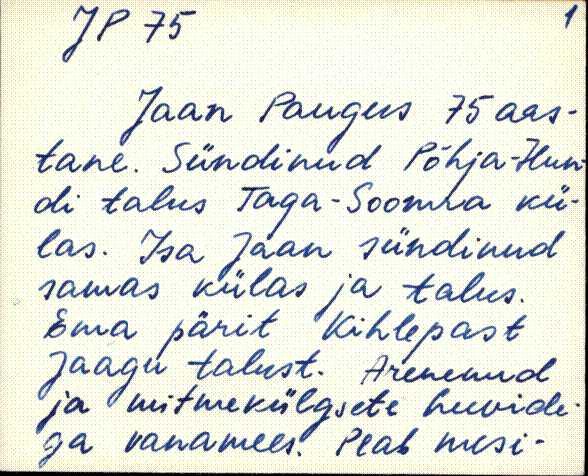 JP 75
1
Jaan Paugus 75 aas-
tane. Sündinud Põhja-Hun-
di talus Taga-Soomra kü-
las. Isa Jaan sündinud
samas külas ja talus.
Ema pärit Kihlepast
Jaagu talust. Arenenud
ja mitmekülgsete huvide-
ga vanamees. Peab mesi-